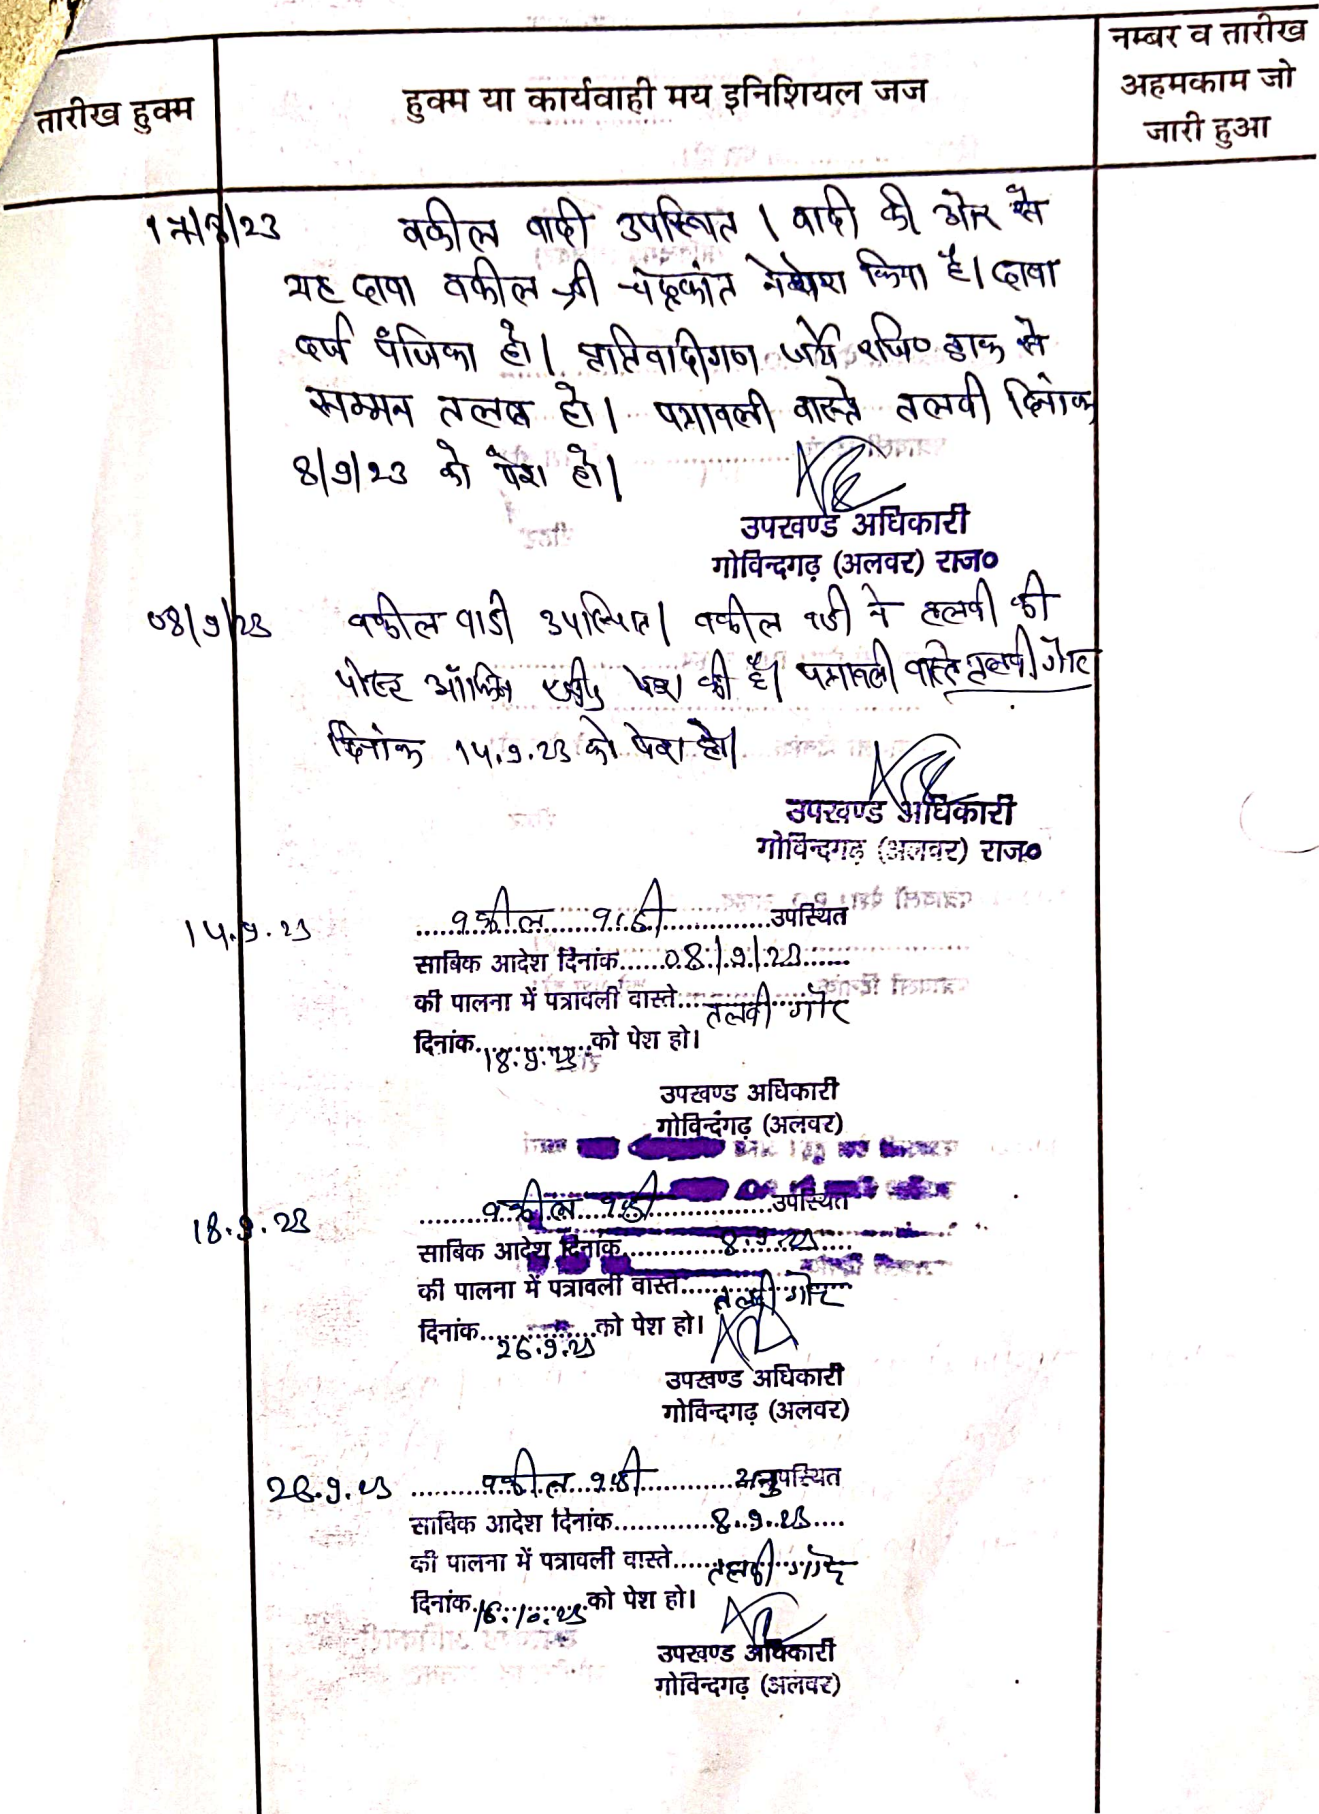 तारीख हुक्म
हुक्म या कार्यवाही मय इनिशियल जज
नम्बर व तारीख
अहमकाम जो
जारी हुआ
17/8/23
वकील वादी उपस्थित । वादी की ओर से
यह दावा वकील श्री चंद्रकांत ने पेश किया है। दावा
दर्ज पंजिका हो। प्रतिवादीगण जर्ये रजि० डाक से
सम्मन तलब हो। पत्रावली वास्ते तलवी दिनांक
8/9/23 को पेश हो।
उपखण्ड अधिकारी
गोविन्दगढ़ (अलवर) राज०
08/9/23
वकील वादी उपस्थित। वकील वादी ने तलवी की
पोस्ट ऑफिस रसीद पेश की है। पत्रावली वास्ते तलवी गौर
दिनांक 14.9.23 को पेश हो।
उपखण्ड अधिकारी
गोविन्दगढ़ (अलवर) राज०
14.9.23
वकील वादी उपस्थित
साबिक आदेश दिनांक......08/9/23......
की पालना में पत्रावली वास्ते...तलवी गौर
दिनांक...18.9.23...को पेश हो।
उपखण्ड अधिकारी
गोविन्दगढ़ (अलवर)
18.9.23
वकील वादी उपस्थित
साबिक आदेश दिनांक...8.9.23...
की पालना में पत्रावली वास्ते...तलवी गौर
दिनांक...26.9.23...को पेश हो।
उपखण्ड अधिकारी
गोविन्दगढ़ (अलवर)
26.9.23
वकील वादी अनुपस्थित
साबिक आदेश दिनांक...8.9.23...
की पालना में पत्रावली वास्ते...तलवी गौर
दिनांक...16.10.23...को पेश हो।
उपखण्ड अधिकारी
गोविन्दगढ़ (अलवर)